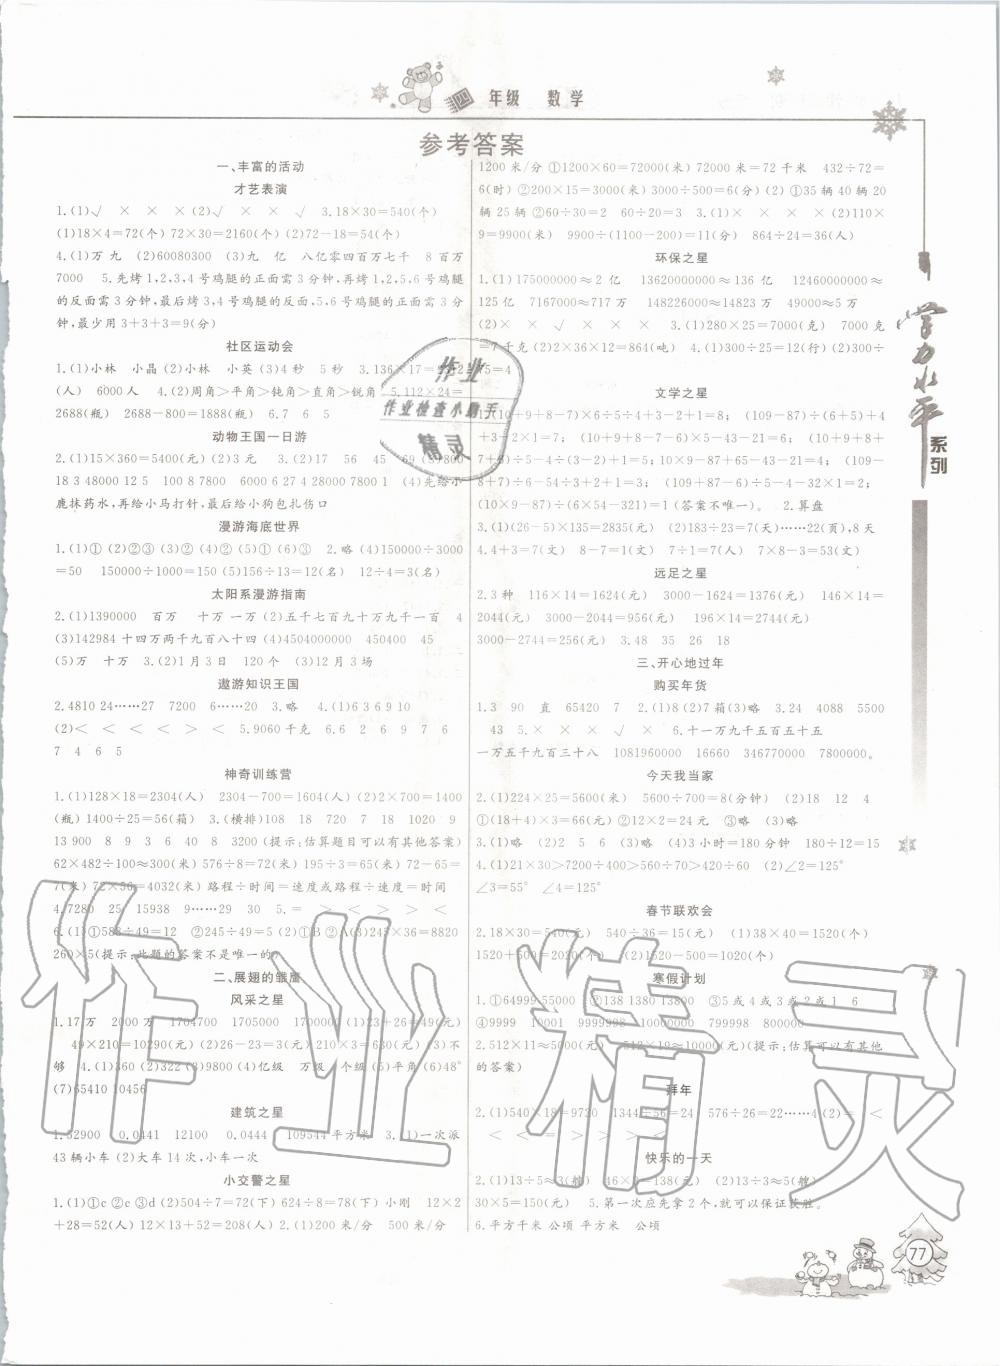 四年级 数学
参考答案
一、丰富的活动
才艺表演
1.(1)√ × × ×(2)√ × × √ 3.18×30=540(个)
(1)18×4=72(个) 72×30=2160(个) (2)72-18=54(个)
4.(1)万 九 (2)60080300 (3)九 亿 八亿零四百万七千 8百万
7000 5.先烤1,2,3,4号鸡腿的正面需3分钟,再烤1,2,5,6号鸡腿
的反面需3分钟,最后烤3,4号鸡腿的反面,5,6号鸡腿正面需3分
钟,最少用3+3+3=9(分)
社区运动会
1.(1)小林 小晶 (2)小林 小英 (3)4秒 5秒 3.136×17=
(人) 6000人 4.(2)周角>平角>钝角>直角>锐角 5.112×24=
2688(瓶) 2688-800=1888(瓶) 6.7 6 5
动物王国一日游
2.(1)15×360=5400(元) (2)3元 3.(2)17 56 45 69 (3)800
18 3 48000 12 5 100 8 7800 6000 6 27 4 28000 7800 1 (4)先给小
鹿抹药水,再给小马打针,最后给小狗包扎伤口
漫游海底世界
1.(1)① (2)②③ (3)② (4)② (5)① (6)③ 2.略 (4)150000÷3000
=50 150000÷1000=150 (5)156÷13=12(名) 12÷4=3(名)
太阳系漫游指南
2.(1)1390000 百万 十万 一万 (2)五千七百九十万九千一百 4
(3)142984 十四万两千九百八十四 (4)4504000000 450400 45
(5)万 十万 3.(2)1月3日 120个 (3)12月3场
遨游知识王国
2.4810 24……27 7200 6……20 3.略 4.(1)6 3 6 9 10
(2)< < < < > < 5.9060千克 6.6 2 6 9 7 6
7 4 6 5
神奇训练营
1.(1)128×18=2304(人) 2304-700=1604(人) (2)2×700=1400
(瓶)1400÷25=56(箱) 3.(横排)108 18 720 7 18 1020 9
13 900 8 9 3 6 40 8 3200 (提示:估算题目可以有其他答案)
62×482÷100≈300(米) 576÷8=72(米) 195÷3=65(米) 72-65=
7(米) 72×56=4032(米)路程÷时间=速度或路程÷速度=时间
4.7280 25 15938 9……29 30 5.= > < > > <
6.(1)①588÷49=12 ②245÷49=5 (2)①B ②A(3)245×36=8820
260×5(提示:此题的答案不是唯一的)
二、展翅的雏鹰
风采之星
1.17万 2000万 1704700 1705000 1700000 (1)23+26=49(元)
49×210=10290(元) (2)26-23=3(元) 210×3=630(元) (3)不
够 4.(1)360 (2)322 (3)9800 (4)亿级 万级 个级 (5)平角 (6)48°
(7)65410 10456
建筑之星
1.52900 0.0441 12100 0.0444 109544平方米 3.(1)一次派
43辆小车 (2)大车14次,小车一次
小交警之星
1.(1)①c ②c ③d (2)504÷7=72(下) 624÷8=78(下) 小刚 12×2
+28=52(人) 12×13+52=208(人) 2.(1)200米/分 500米/分
1200米/分 ①1200×60=72000(米) 72000米=72千米 432÷72=
6(时) ②200×15=3000(米) 3000÷500=6(分) (2)①35辆 40辆 20
辆 25辆 ②60÷30=2 60÷20=3 3.(1)× × × × (2)110×
9=9900(米) 9900÷(1100-200)=11(分) 864÷24=36(人)
环保之星
1.(1)175000000≈2亿 13620000000≈136亿 12460000000≈
125亿 7167000≈717万 148226000≈14823万 49000≈5万
(2)× × √ × × × 3.(1)280×25=7000(克) 7000克
=7千克 (2)2×36×12=864(吨) 4.(1)300÷25=12(行) (2)300÷
75=4
文学之星
1.(10+9+8-7)×6÷5÷4+3-2+1=8; (109-87)÷(6+5)+4
+3×2×1=7; (10+9+8-7-6)×5-43-21=6; (109-
87+6)÷5-4÷(3-2)+1=5; 10×9-87+65-43-21=4; (109-
8+7)÷6-5-54÷3+2+1=3; (109-87+6)÷5-4-32×1=2;
(10×9-87)÷(6-5)-43+2=1(答案不唯一)。 2.算盘
3.(1)(26-5)×135=2835(元) (2)183÷23=7(天)……22(页),8天
4.4+3=7(文) 8-7=1(文) 7÷1=7(人) 7×8-3=53(文)
远足之星
2.3种 116×14=1624(元) 3000-1624=1376(元) 146×14=
2044(元) 3000-2044=956(元) 196×14=2744(元)
3000-2744=256(元) 3.48 35 26 18
三、开心地过年
购买年货
1.3 90 直 65420 7 2.(1)8(2)7箱(3)略 3.24 4088 5500
43 5.× × × √ × 6.十一万九千五百五十五
一万五千九百三十八 1081960000 16660 346770000 7800000。
今天我当家
2.(1)224×25=5600(米) 5600÷700=8(分钟) (2)18 12 4
①(18+4)×3=66(元) ②12×2=24元 ③略 (3)略
3.(1)略 (2)2 5 6 (3)略 (4)3小时=180分钟 180÷12=15
4.(1)21×30>7200÷400>560÷70>420÷60 (2)∠2=125°
∠3=55° ∠4=125°
春节联欢会
2.18×30=540(元) 540÷36=15(元) (1)38×40=1520(个)
1520+500=2020(个) (2)1520-500=1020(个)
寒假计划
1.①64999 55000 ②138 1380 13800 ③5或4或3或2或1 6
④9999 10001 9999998 10000000 799998 800000
2.512×11≈5000(元) 512×19≈10000(元)(提示:估算可以有其他
的答案)
拜年
2.(1)540×18=9720 1344÷56=24 576÷26=22……4 (2)= <
< < > > > > < <
快乐的一天
2.(1)13÷5≈3(艘) 46×3=138(元) (2)13÷3≈5(艘)
30×5=150(元) 5.第一次应先拿2个,就可以保证获胜。
6.平方千米 公顷 平方米 公顷
学力水平
系列
77
作业
作业检查小助手
精灵
作业精灵